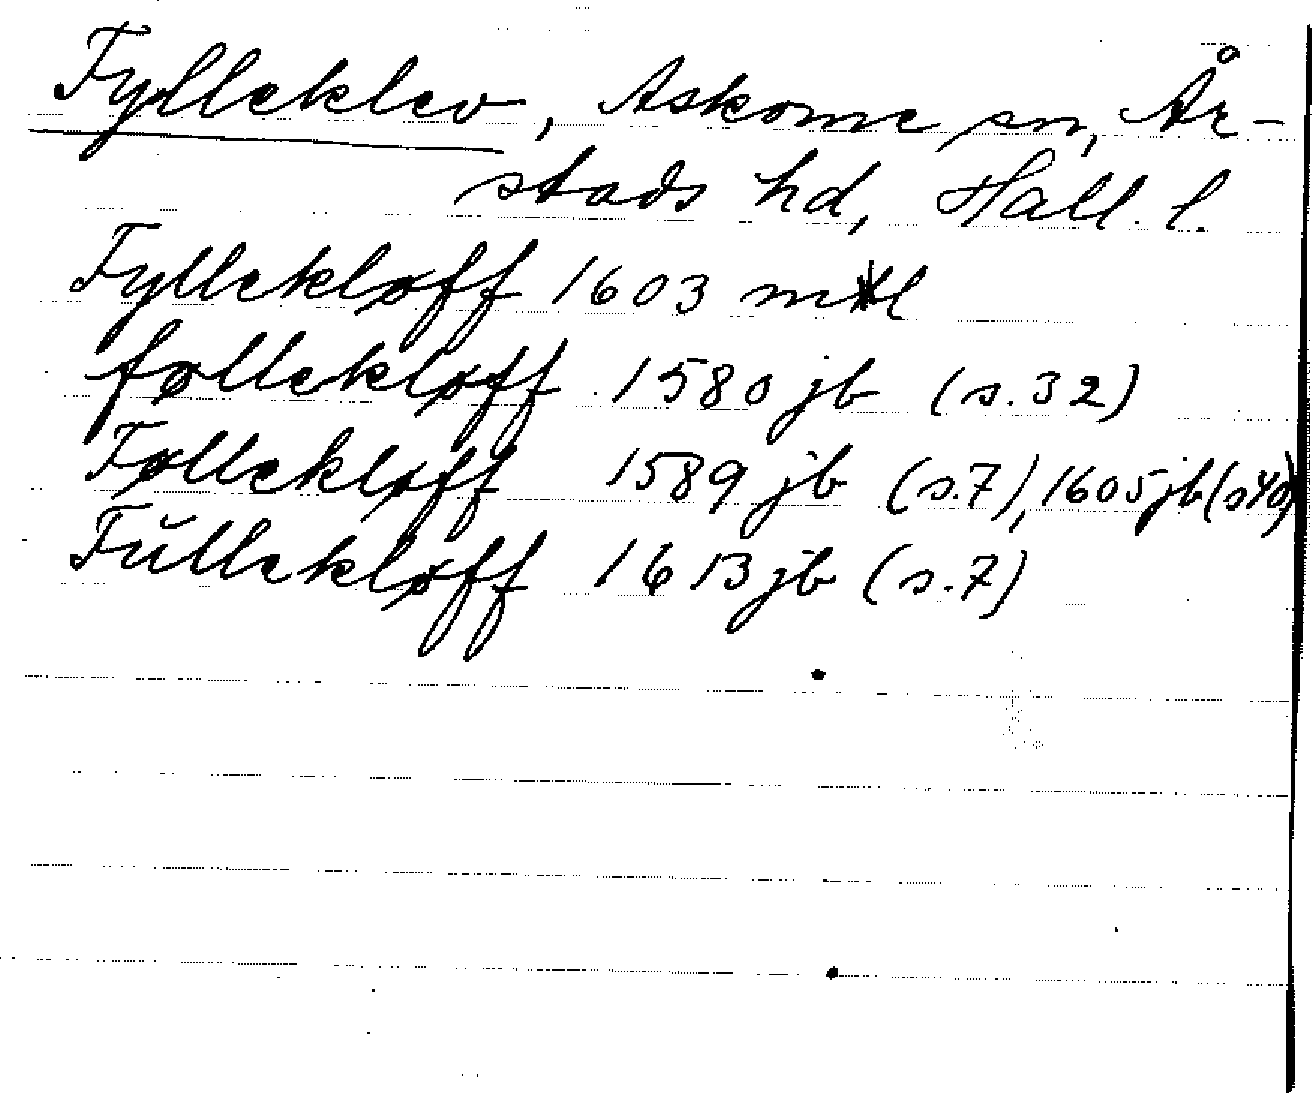 Fylleklev, Askome sn, År-
stads hd, Hall. l.
Fyllekløff 1603 mtl
føllekløff 1580 jb (s.32)
Føllekløff 1589 jb (s.7), 1605 jb (s 40)
Fŭllekløff 1613 jb (s.7)